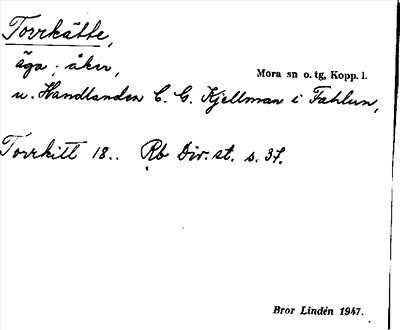 Torrkätte,
äga, åker,
Mora sn o. tg, Kopp. l.
u. Handlanden C. G. Kjellman i Fahlun,
Torrkitt 18.. Rb Div. st. s. 37.
Bror Lindén 1947.